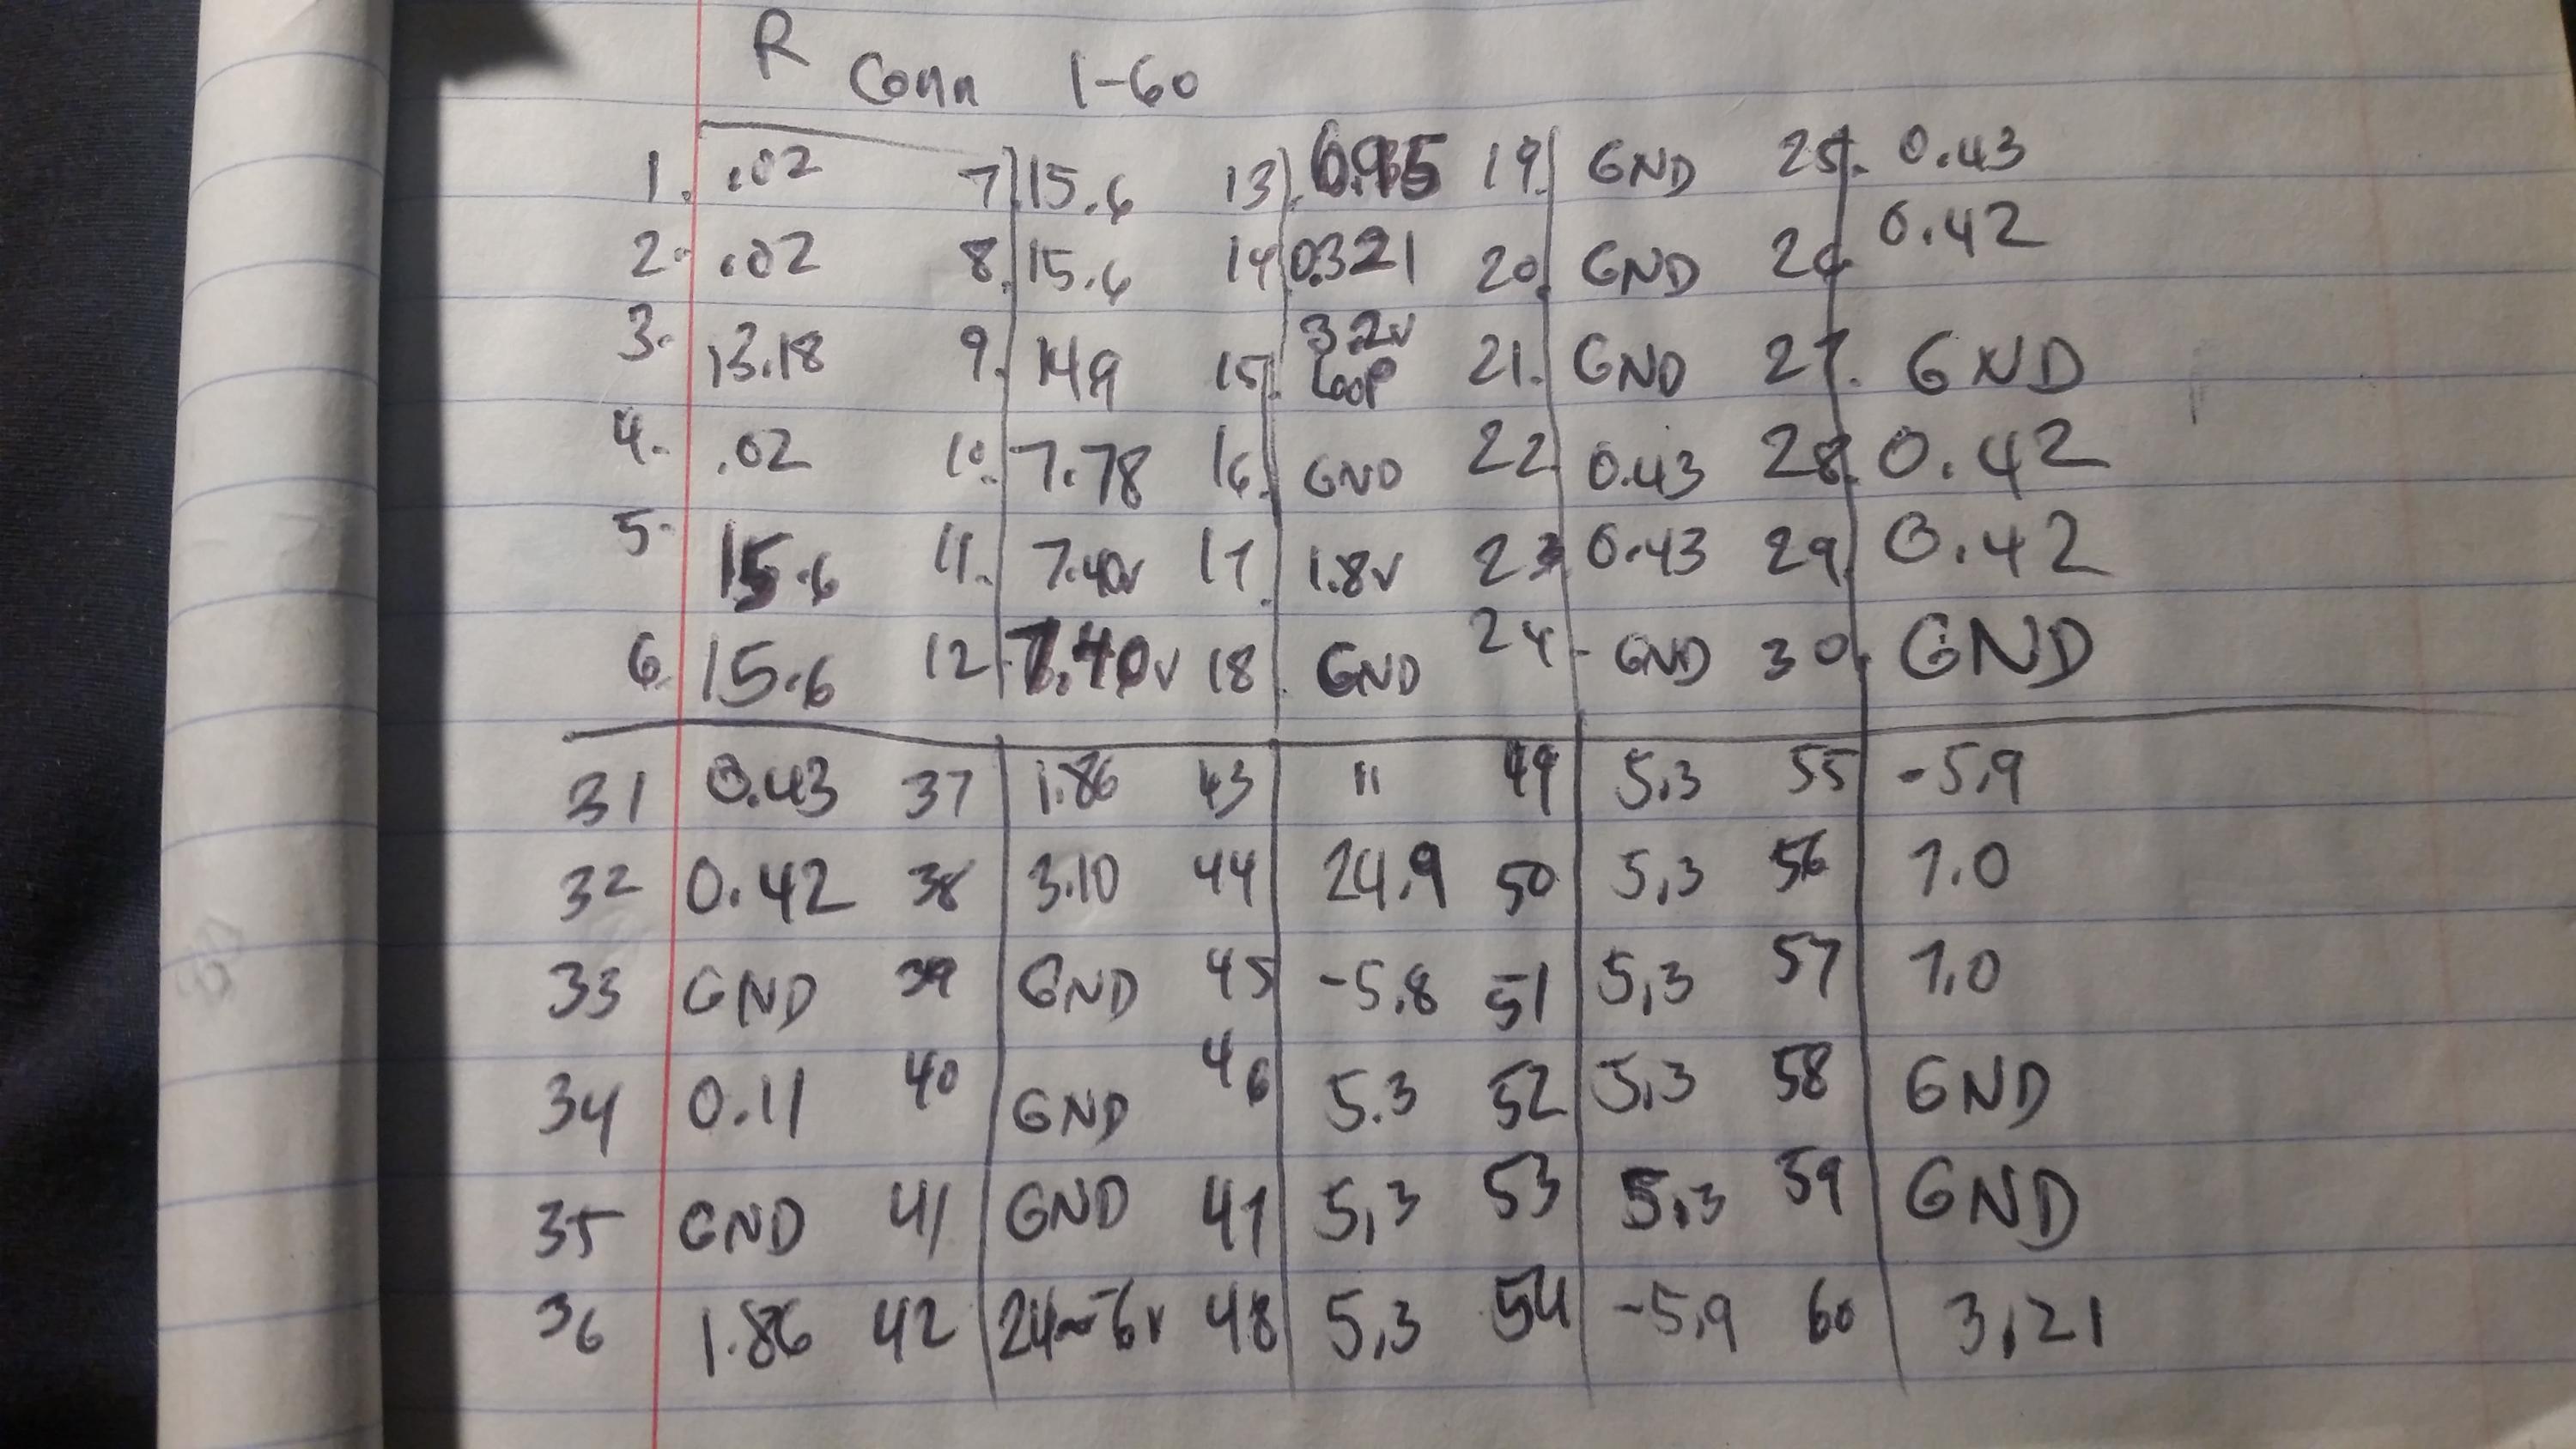 R Conn 1-60
1. .02 7. 15.6 13. 0.95 19. GND 25. 0.43
2. .02 8. 15.6 14. 0.321 20. GND 26. 0.42
3. 13.18 9. 14.9 15. 3.2v Loop 21. GND 27. GND
4. .02 10. 7.78 16. GND 22. 0.43 28. 0.42
5. 15.6 11. 7.40v 17. 1.8v 23. 0.43 29. 0.42
6. 15.6 12. 7.40v 18. GND 24. GND 30. GND
31 0.43 37 1.86 43 " 49 5.3 55 -5.9
32 0.42 38 3.10 44 24.9 50 5.3 56 7.0
33 GND 39 GND 45 -5.8 51 5.3 57 7.0
34 0.11 40 GND 46 5.3 52 5.3 58 GND
35 GND 41 GND 47 5.3 53 5.3 59 GND
36 1.86 42 24~-6v 48 5.3 54 -5.9 60 3.21